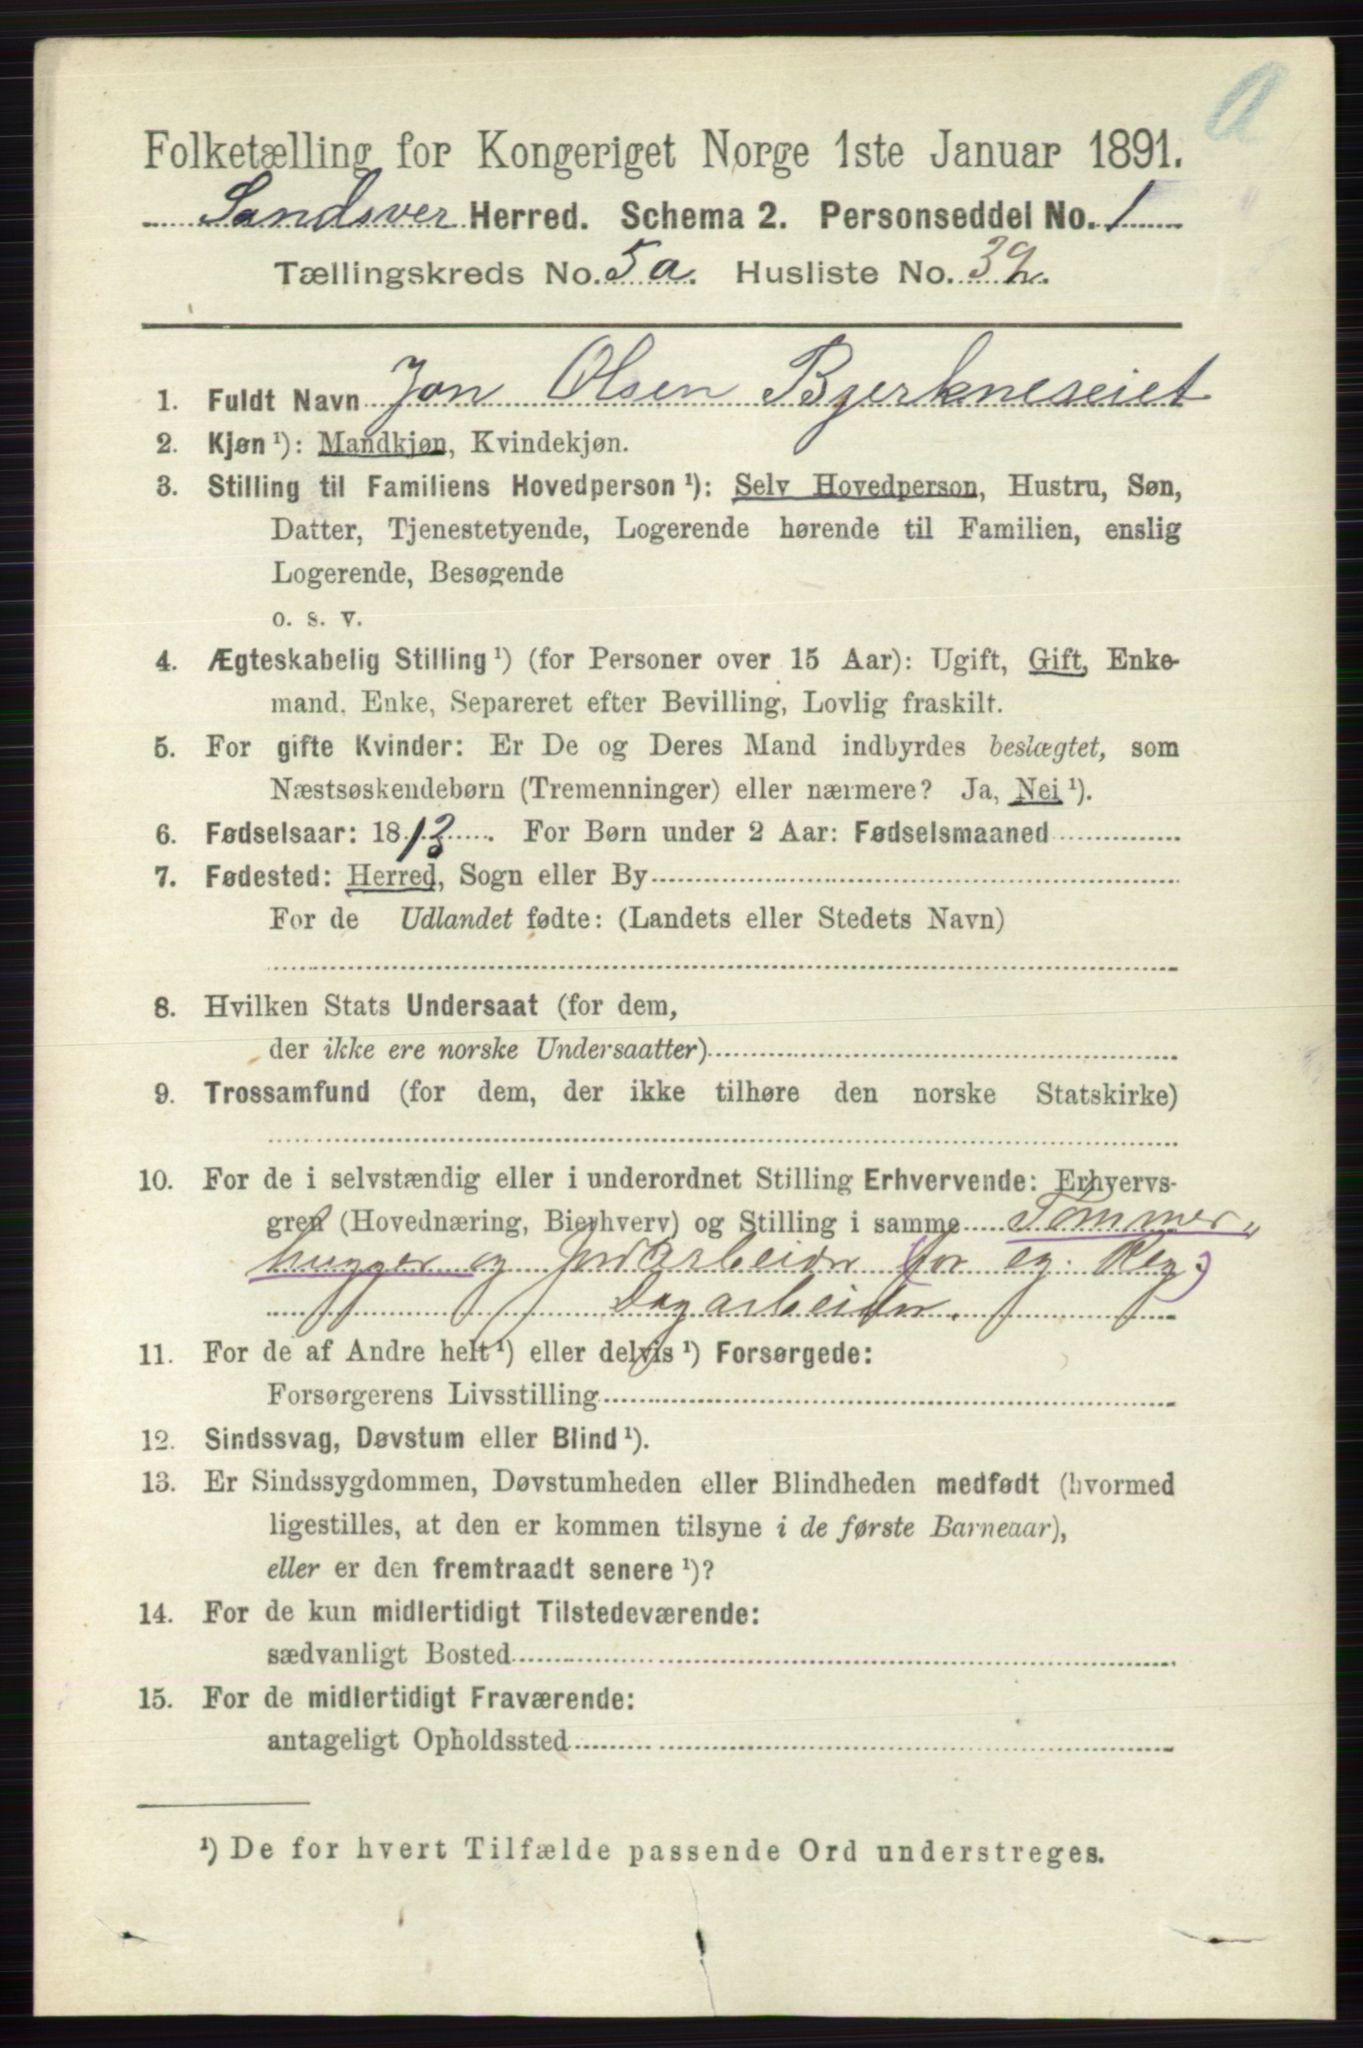 a
Folketælling for Kongeriget Norge 1ste Januar 1891.
Sandsver Herred. Schema 2. Personseddel No. 1
Tællingskreds No. 5 a. Husliste No. 39.
1. Fuldt Navn Jon Olsen Bjerkneseiet
2. Kjøn ¹): Mandkjøn, Kvindekjøn.
3. Stilling til Familiens Hovedperson ¹): Selv Hovedperson, Hustru, Søn,
Datter, Tjenestetyende, Logerende hørende til Familien, enslig
Logerende, Besøgende
o. s. v.
4. Ægteskabelig Stilling ¹) (for Personer over 15 Aar): Ugift, Gift, Enke-
mand, Enke, Separeret efter Bevilling, Lovlig fraskilt.
5. For gifte Kvinder: Er De og Deres Mand indbyrdes beslægtet, som
Næstsøskendebørn (Tremenninger) eller nærmere? Ja, Nei ¹).
6. Fødselsaar: 1813. For Børn under 2 Aar: Fødselsmaaned
7. Fødested: Herred, Sogn eller By
For de Udlandet fødte: (Landets eller Stedets Navn)
8. Hvilken Stats Undersaat (for dem,
der ikke ere norske Undersaatter)
9. Trossamfund (for dem, der ikke tilhøre den norske Statskirke)
10. For de i selvstændig eller i underordnet Stilling Erhvervende: Erhvervs-
gren (Hovednæring, Bierhverv) og Stilling i samme Tømmer-
hugger og Jordarbeider (for eg. Reg.)
Dagarbeider.
11. For de af Andre helt ¹) eller delvis ¹) Forsørgede:
Forsørgerens Livsstilling
12. Sindssvag, Døvstum eller Blind ¹).
13. Er Sindssygdommen, Døvstumheden eller Blindheden medfødt (hvormed
ligestilles, at den er kommen tilsyne i de første Barneaar),
eller er den fremtraadt senere ¹)?
14. For de kun midlertidigt Tilstedeværende:
sædvanligt Bosted
15. For de midlertidigt Fraværende:
antageligt Opholdssted
¹) De for hvert Tilfælde passende Ord understreges.